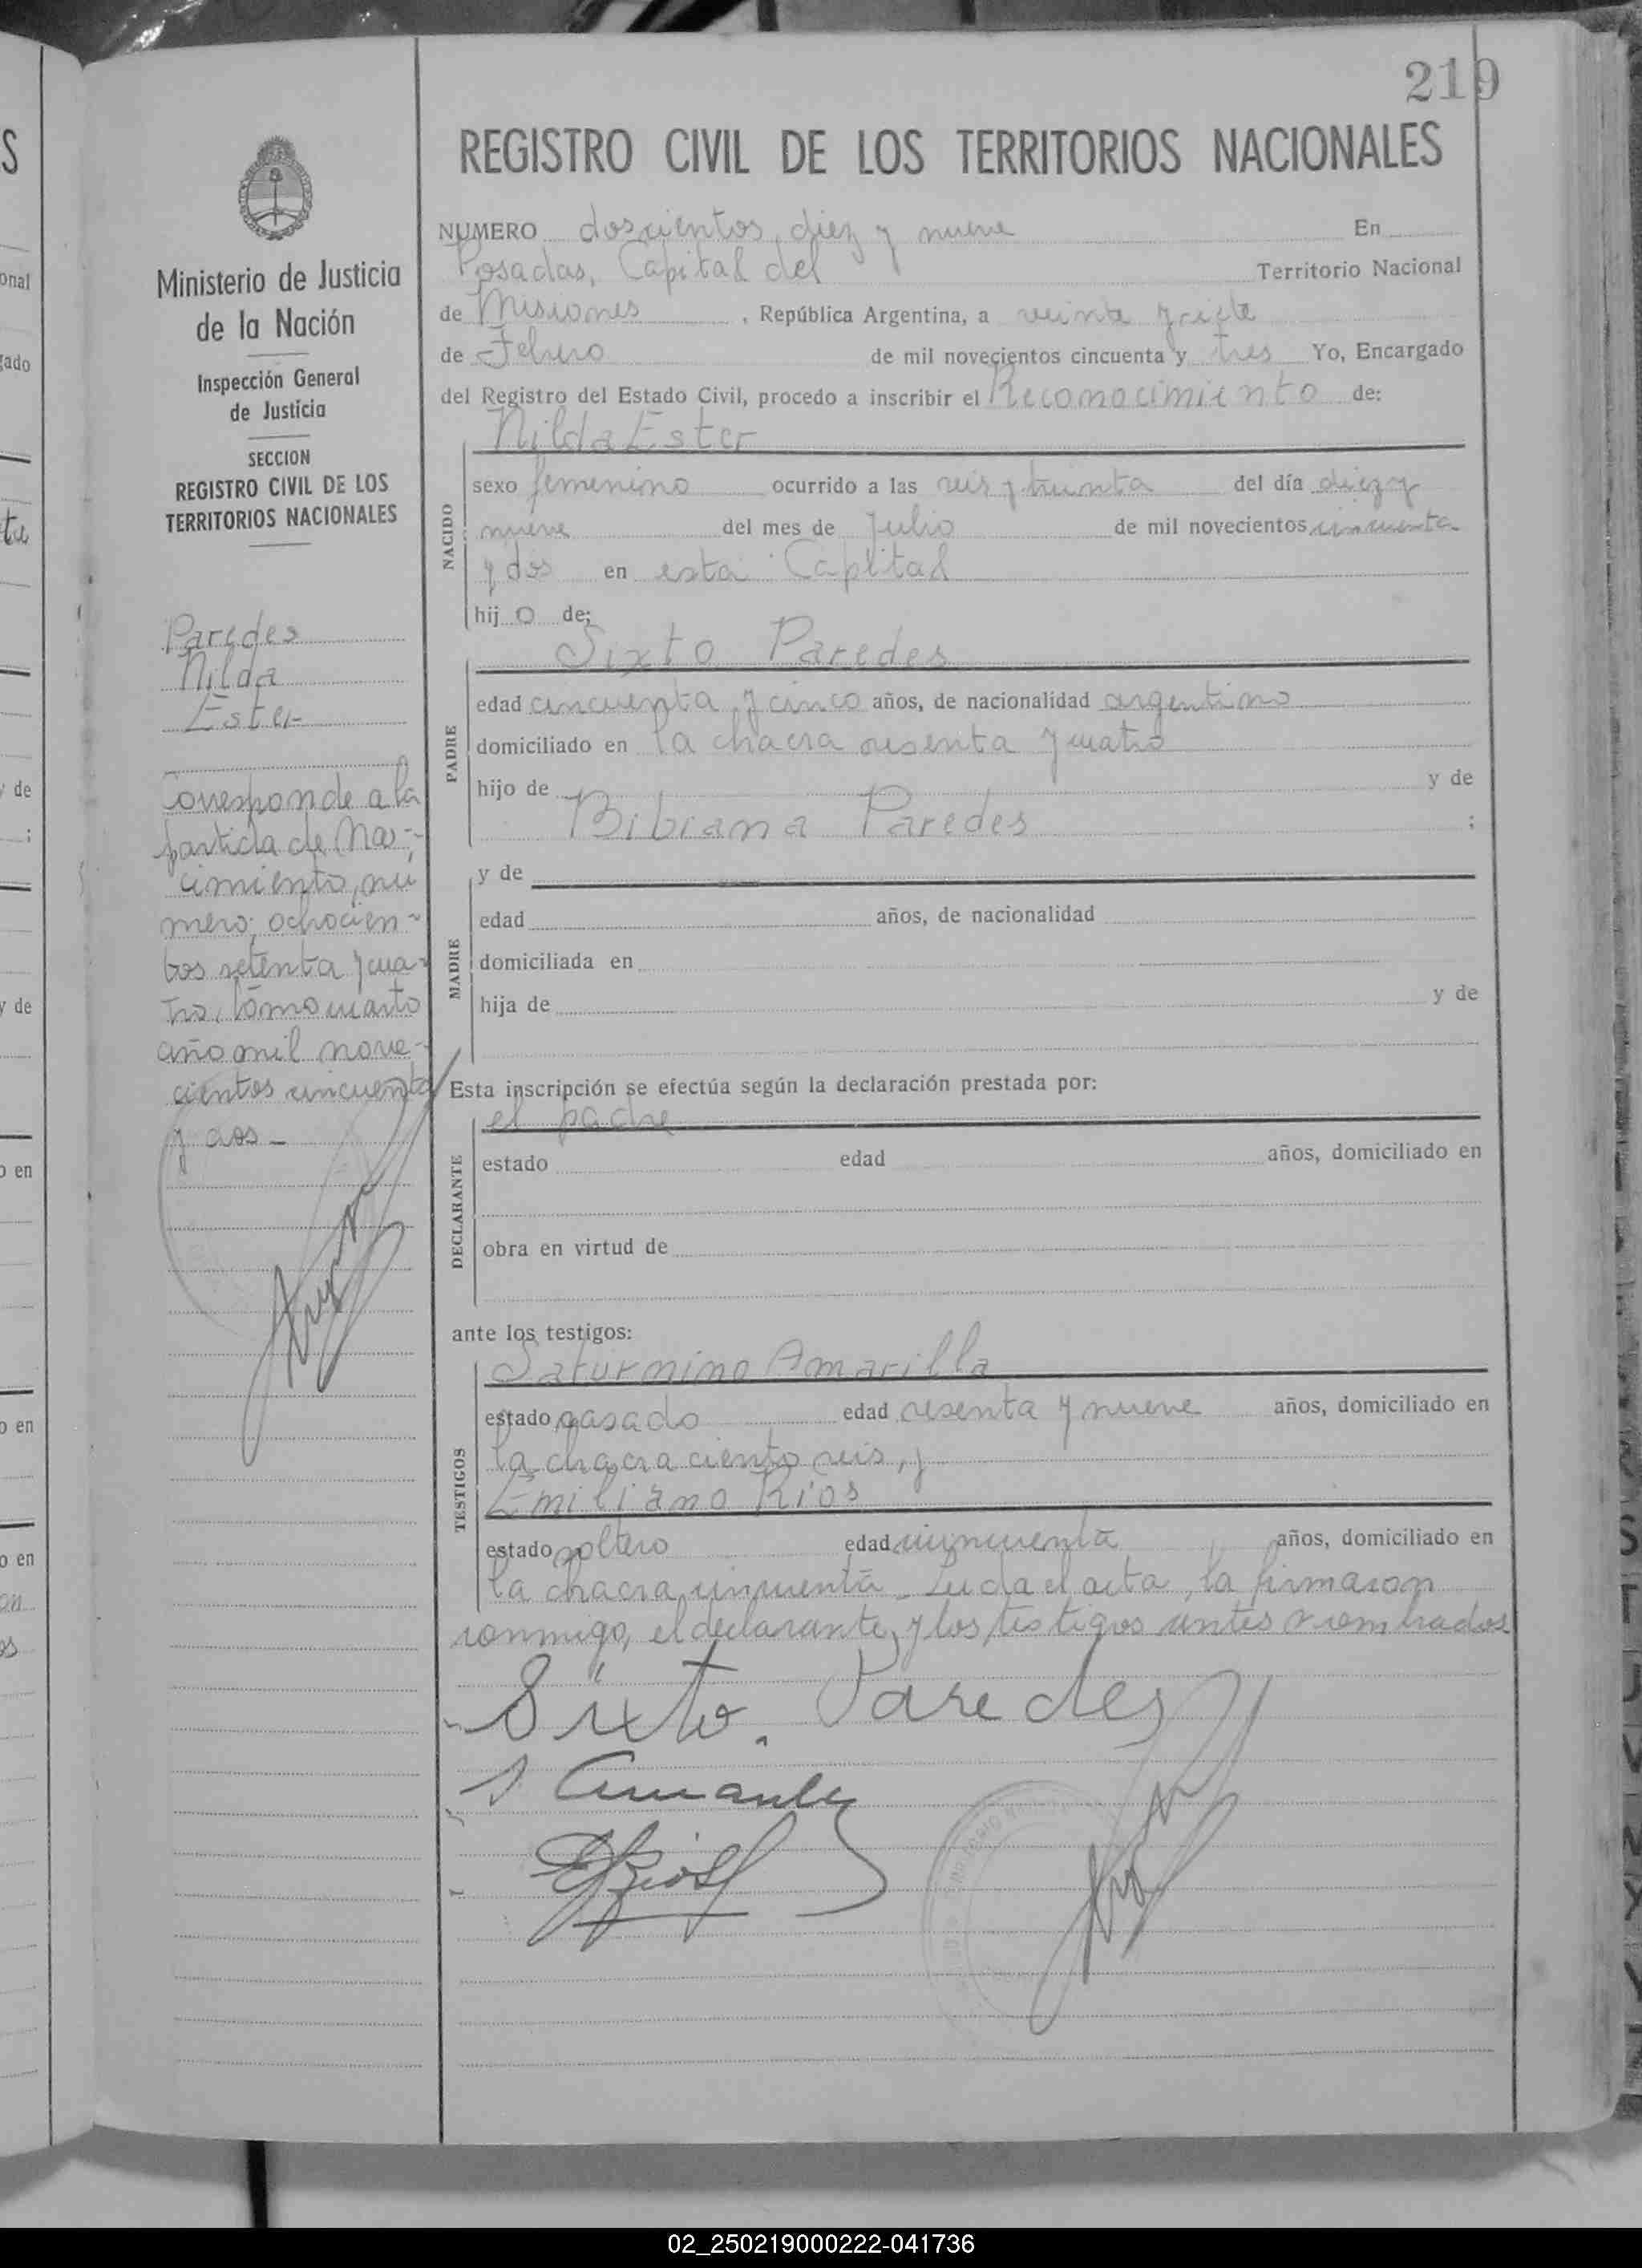 219
REGISTRO CIVIL DE LOS TERRITORIOS NACIONALES
Ministerio de Justicia
de la Nación
Inspección General
de Justicia
SECCION
REGISTRO CIVIL DE LOS
TERRITORIOS NACIONALES
Paredes
Nilda
Ester
Corresponde a la
partida de Na-
cimiento, nú
mero; ochocien-
tos setenta y cua-
tro, tomo cuarto
año mil nove-
cientos cincuenta
y dos -
NUMERO doscientos diez y nueve En
Posadas, Capital del Territorio Nacional
de Misiones, República Argentina, a veinte y siete
de Febrero de mil novecientos cincuenta y tres Yo, Encargado
del Registro del Estado Civil, procedo a inscribir el Reconocimiento de:
Nilda Ester
NACIDO
sexo femenino ocurrido a las seis y treinta del día diez y
nueve del mes de Julio de mil novecientos cincuenta
y dos en esta Capital
hij o de;
Sixto Paredes
PADRE
edad cincuenta y cinco años, de nacionalidad argentino
domiciliado en la chacra sesenta y cuatro
hijo de y de
Bibiana Paredes ;
y de
MADRE
edad años, de nacionalidad
domiciliada en
hija de y de
Esta inscripción se efectúa según la declaración prestada por:
el padre
DECLARANTE
estado edad años, domiciliado en
obra en virtud de
ante los testigos:
Saturnino Amarilla
TESTIGOS
estado casado edad sesenta y nueve años, domiciliado en
la chacra ciento seis, y
Emiliano Rios
estado soltero edad cincuenta años, domiciliado en
la chacra cincuenta. Leida el acta, la firmaron
conmigo, el declarante, y los testigos antes nombrados
Sixto. Paredes
E Rios
02_250219000222-041736